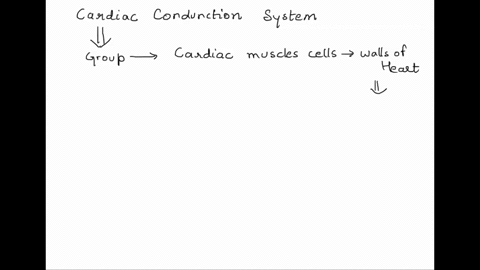 Cardiac Condunction System
Group → Cardiac muscles cells → walls of
Heart